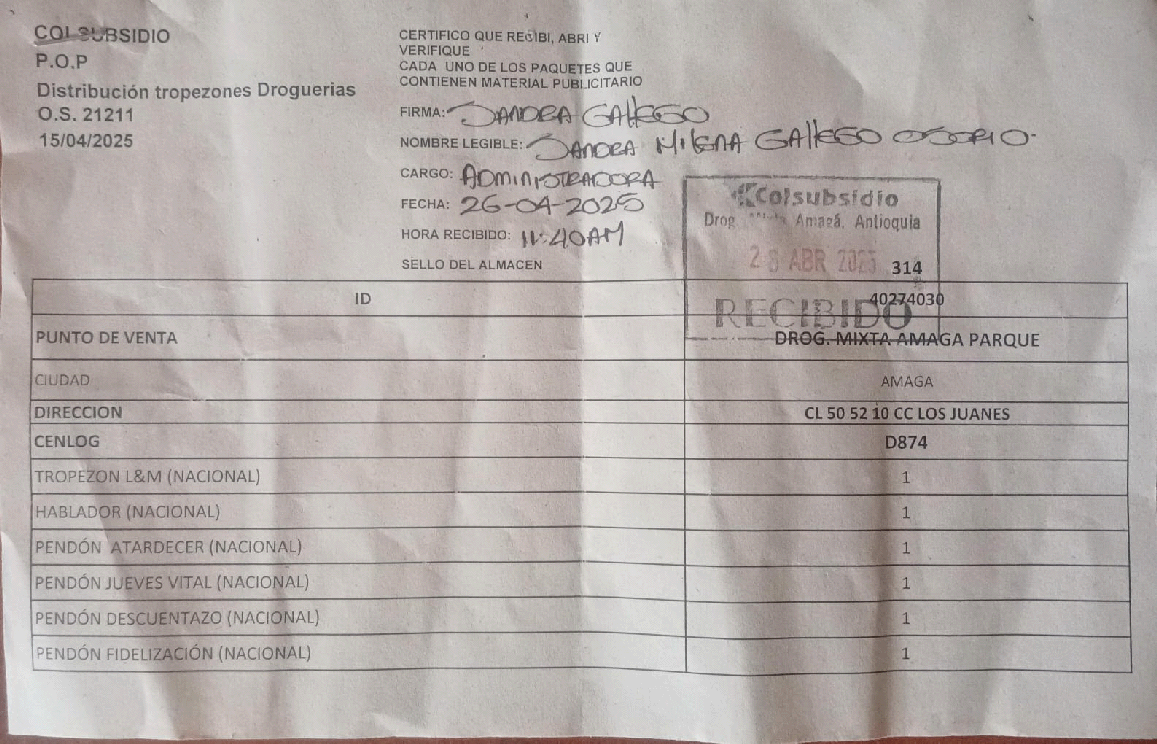 COLSUBSIDIO
P.O.P
Distribución tropezones Droguerias
O.S. 21211
15/04/2025
CERTIFICO QUE RECIBI, ABRI Y
VERIFIQUE
CADA UNO DE LOS PAQUETES QUE
CONTIENEN MATERIAL PUBLICITARIO
FIRMA: SANDRA GAllEGO
NOMBRE LEGIBLE: SANDRA MILENA GAllEGO OSORIO.
CARGO: ADMINISTRADORA
FECHA: 26-04-2025
HORA RECIBIDO: 11:40AM
SELLO DEL ALMACEN
Colsubsidio
Drog. Amagá, Antioquia
ABR 2025
RECIBIDO
314
ID 40274030
PUNTO DE VENTA DROG. MIXTA AMAGA PARQUE
CIUDAD AMAGA
DIRECCION CL 50 52 10 CC LOS JUANES
CENLOG D874
TROPEZON L&M (NACIONAL) 1
HABLADOR (NACIONAL) 1
PENDÓN ATARDECER (NACIONAL) 1
PENDÓN JUEVES VITAL (NACIONAL) 1
PENDÓN DESCUENTAZO (NACIONAL) 1
PENDÓN FIDELIZACIÓN (NACIONAL) 1